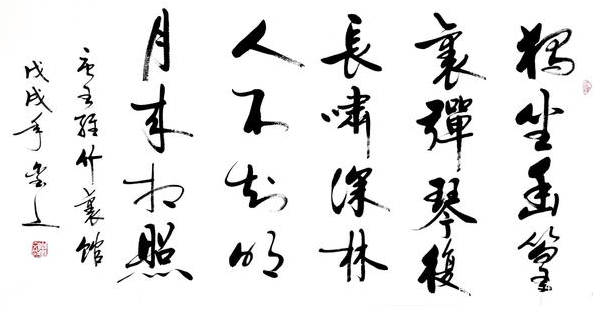 獨坐幽篁
裏彈琴復
長嘯深林
人不知明
月来相照
唐王維竹裏館
戊戌年